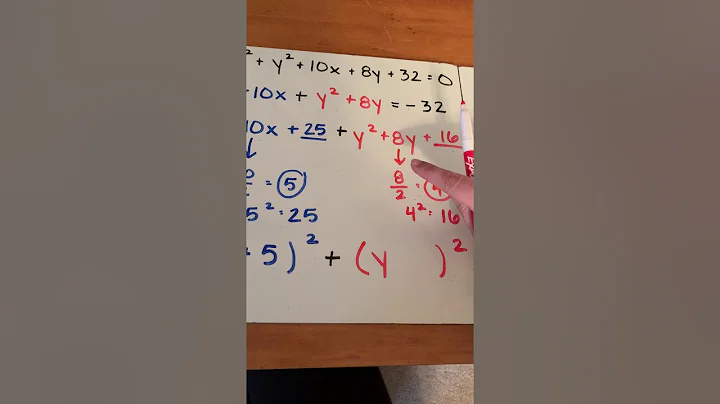 ² + y² + 10x + 8y + 32 = 0
10x + y² + 8y = - 32
10x + 25 + y² + 8y + 16
↓ ↓
= 5 8/2 = 4
5² = 25 4² = 16
5)² + (y )²